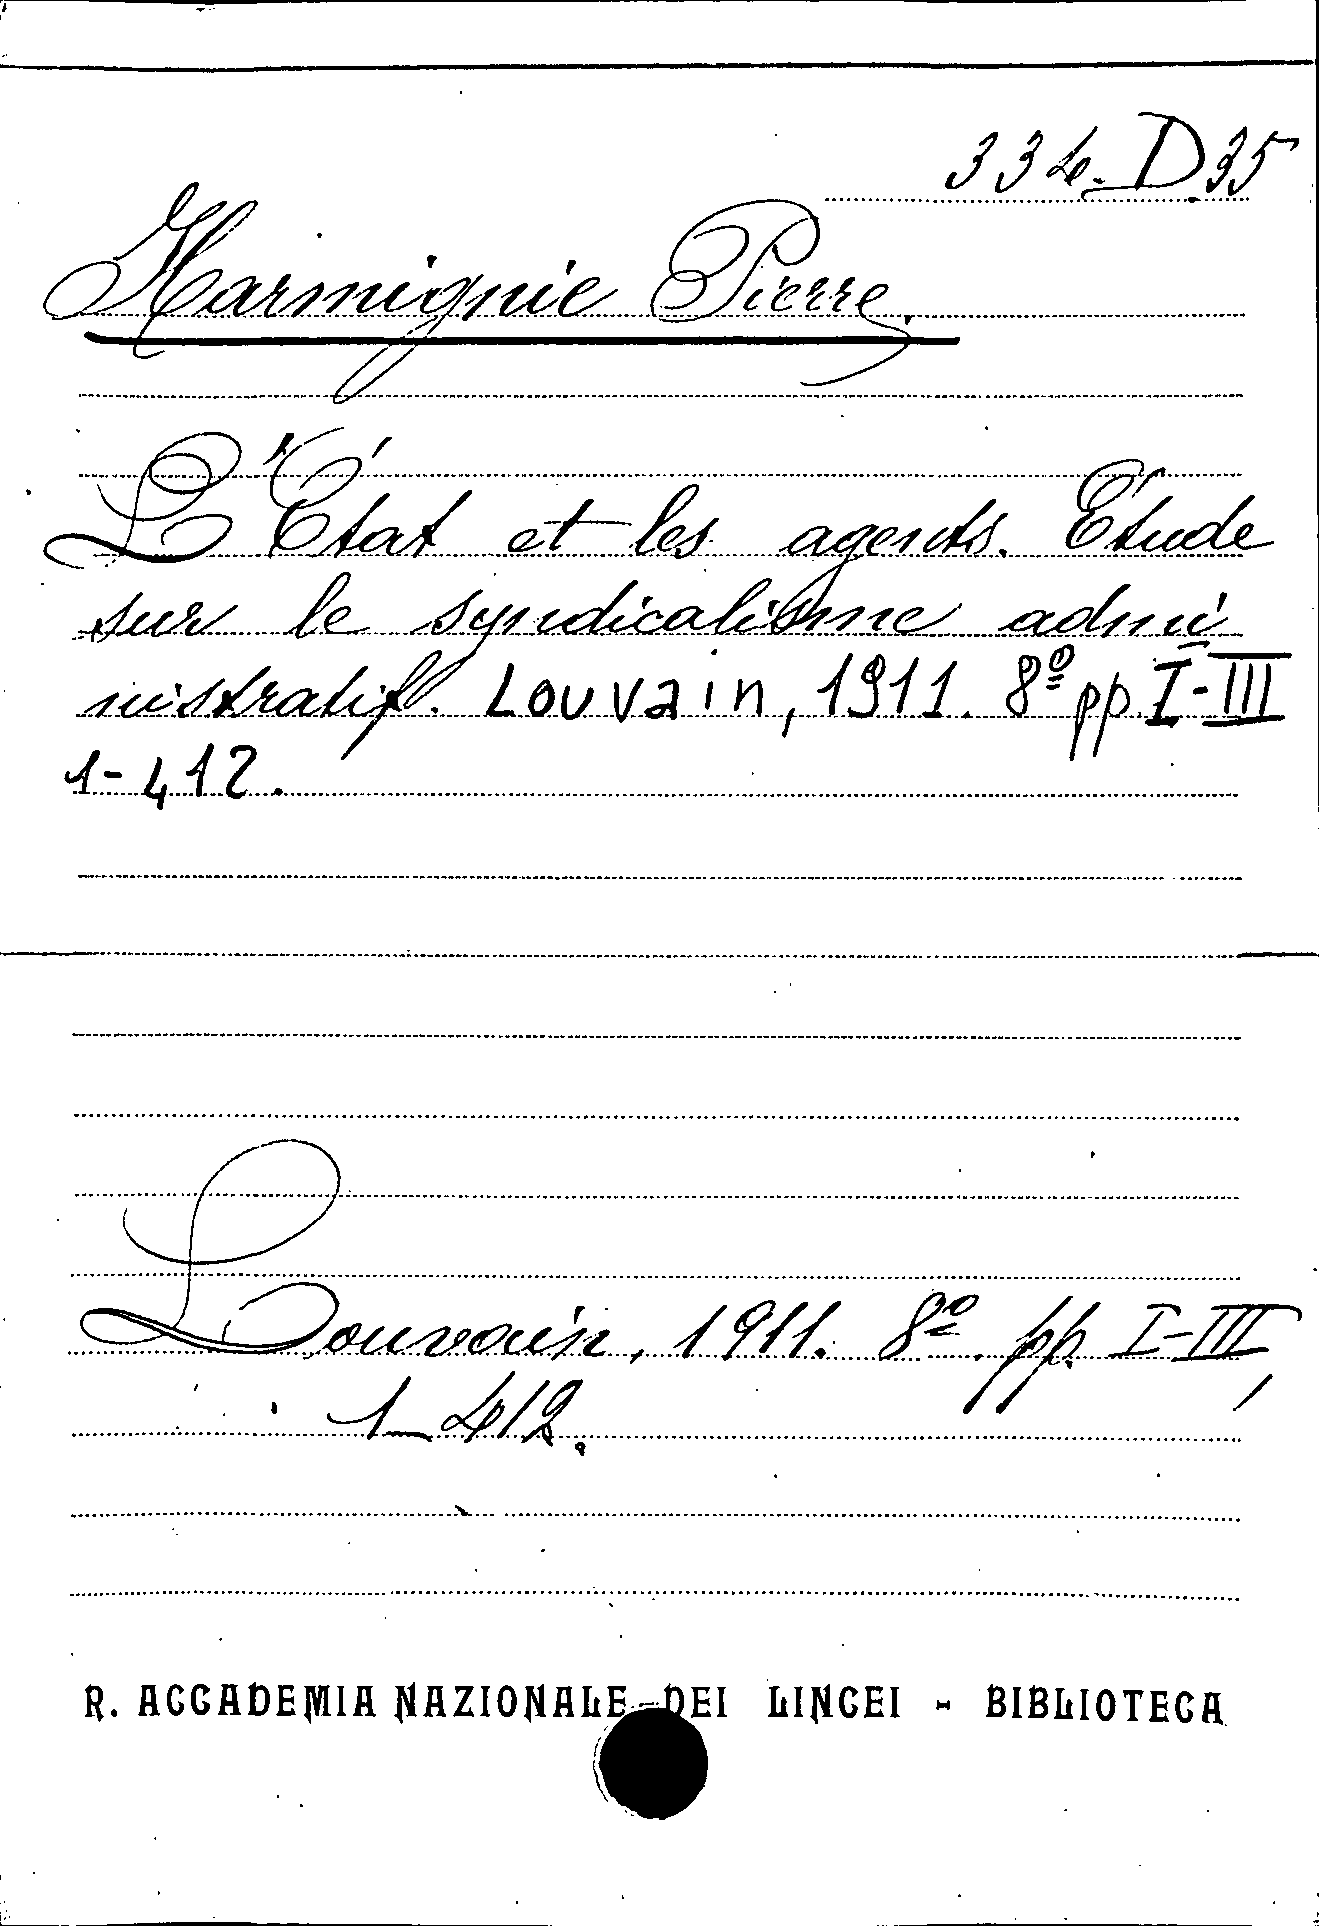 334.D.35
Harmignie Pierre.
L'État et les agents. Étude
sur le syndicalisme admi
nistratif. Louvain, 1911. 8º pp. I-III
1-412.
Louvain, 1911. 8º. pp. I-III,
1-412.
R. ACCADEMIA NAZIONALE DEI LINCEI - BIBLIOTECA